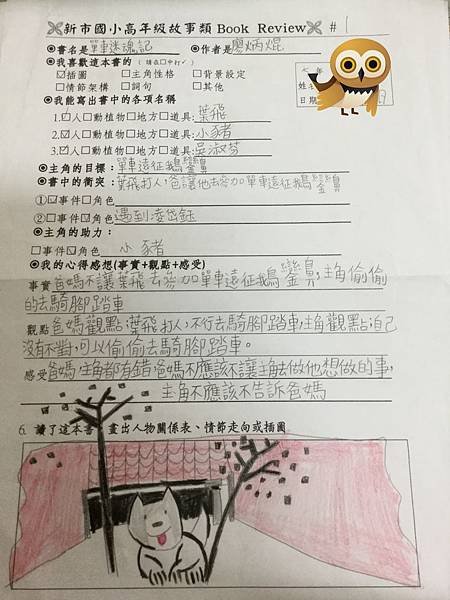 新市國小高年級故事類 Book Review # 1
◎書名是單車迷魂記 ◎作者是廖炳焜
◎我喜歡這本書的（請在□中打✓）
☑插圖 □主角性格 □背景設定
□情節架構 □詞句 □其他
◎我能寫出書中的各項名稱
1.☑人□動植物□地方□道具:葉飛
2.☑人□動植物□地方□道具:小豬
3.☑人□動植物□地方□道具:吳淑芬
◎主角的目標：單車遠征鵝鑾鼻
◎書中的衝突：葉飛打人,爸讓他去參加單車遠征鵝鑾鼻
①☑事件□角色
②□事件☑角色 遇到凌岱鈺
◎主角的助力：
□事件☑角色 小豬
◎我的心得感想(事實+觀點+感受)
事實 爸媽不讓葉飛去參加單車遠征鵝鑾鼻,主角偷偷
的去騎腳踏車
觀點 爸媽觀點:葉飛打人,不行去騎腳踏車,主角觀點:自己
沒有不對,可以偷偷去騎腳踏車。
感受 爸媽,主角都有錯,爸媽不應該不讓主角去做他想做的事,
主角不應該不告訴爸媽
6. 讀了這本書，畫出人物關係表、情節走向或插圖